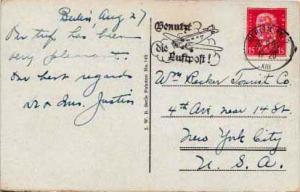 Berlin, Aug 27
Our trip has been
very pleasant.
Our best regards
Mr & Mrs. Justin
Benutzt
die
Luftpost!
15 15
XIII
Wm Becker Tourist Co.
4th Ave, near 14 St.
New York City
U. S. A.